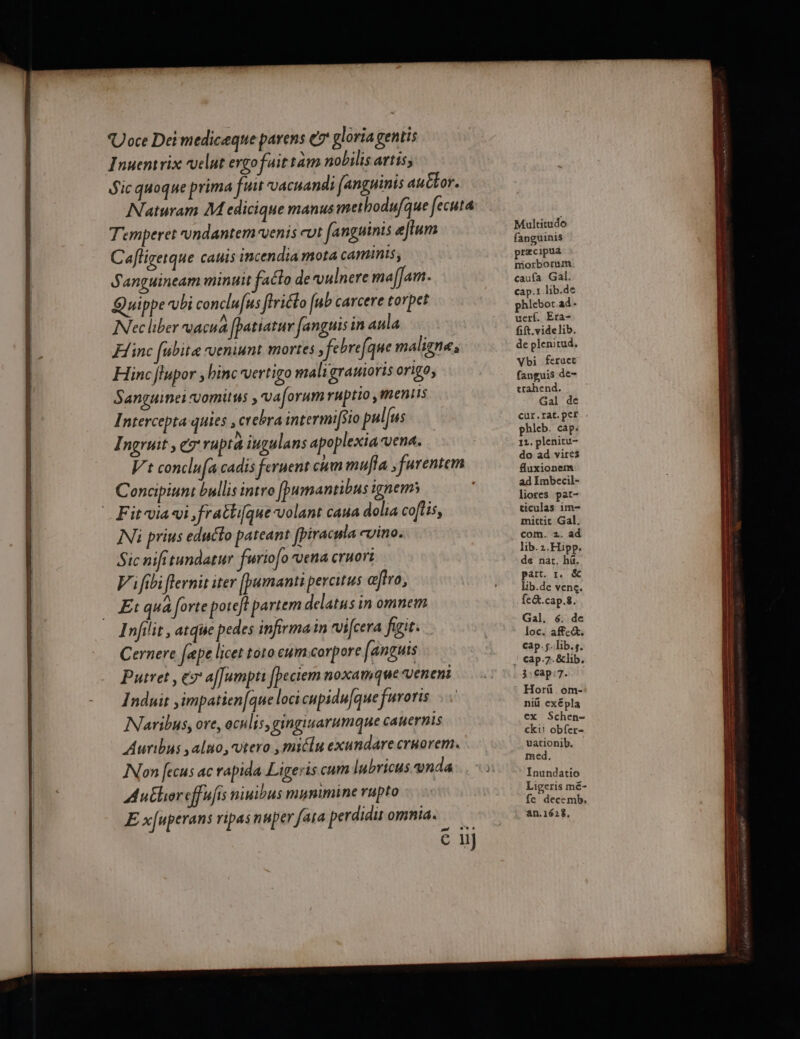 Voce Dei medicæque parens & gloria gentis
Inuentrix velut ergo fuit tàm nobilis artis,
Sic quoque prima fuit vacuandi ſanguinis auctor.
Naturam Medicique manus methoduſque ſecuta
Temperet vndantem venis vt ſanguinis æſtum
Caſtigetque cauis incendia mota caminis,
Sanguineam minuit facto de vulnere maſſam.
Quippe vbi concluſus ſtricto ſub carcere torpet
Nec liber vacuâ ſpatiatur ſanguis in aula
Hinc ſubitæ veniunt mortes, febreſque malignæ,
Hinc ſtupor, hinc vertigo mali grauioris origo,
Sanguinei vomitus, vaſorum ruptio, mentis
Intercepta quies, crebra intermiſsio pulſus
Ingruit, & ruptâ iugulans apoplexia vena.
Vt concluſa cadis feruent cùm muſta, furentem
Concipiunt bullis intro ſpumantibus ignem;
Fit via vi, fractiſque volant caua dolia coſtis,
Ni prius educto pateant ſpiracula vino.
Sic niſi tundatur furioſo vena cruori
Vi ſibi ſternit iter ſpumanti percitus œſtro,
Et quâ forte poteſt partem delatus in omnem
Inſilit, atque pedes infirma in viſcera figit.
Cernere ſæpe licet toto cum corpore ſanguis
Putret, & aſſumpti ſpeciem noxamque veneni
Induit, impatienſque loci cupiduſque furoris
Naribus, ore, oculis, gingiuarumque cauernis
Auribus, aluo, vtero, mictu exundare cruorem.
Non ſecus ac rapida Ligeris cum lubricus vnda
Auctior effuſis niuibus munimine rupto
Exſuperans ripas nuper ſata perdidit omnia.
c iij
Multitudo
ſanguinis
præcipua
morborum
cauſa Gal.
cap.1 lib.de
phlebot.ad-
uerſ. Era-
ſiſt.vide lib.
de plenitud.
Vbi feruet
ſanguis de-
trahend.
Gal de
cur.rat.per
phleb. cap.
11. plenitu-
do ad vires
fluxionem
ad Imbecil-
liores par-
ticulas im-
mittit Gal.
com. 2. ad
lib.2.Hipp.
de nat. hũ.
part. 1. &
lib.de venę.
ſect.cap.8.
Gal. 6. de
loc. affect.
cap.5.lib.5.
cap.7.&lib.
3.cap.7.
Horũ om-
niũ exẽpla
ex Schen-
ckii obſer-
uationib.
med.
Inundatio
Ligeris mẽ-
ſe decemb.
an.1628.